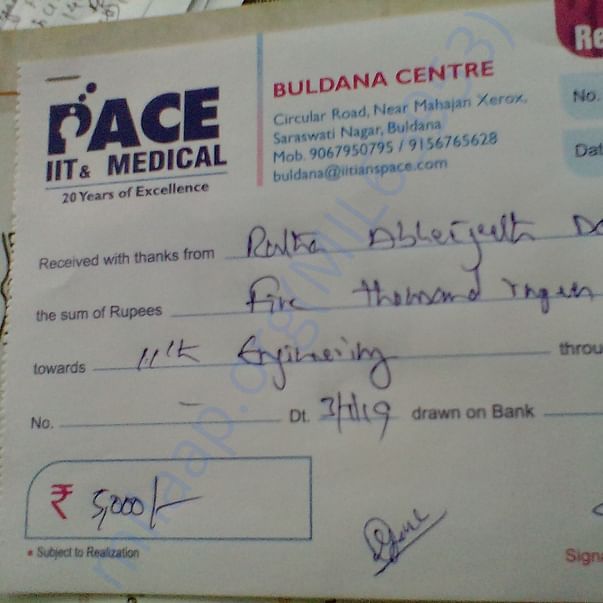 Re
PACE
IIT & MEDICAL
20 Years of Excellence
BULDANA CENTRE
Circular Road, Near Mahajan Xerox,
Saraswati Nagar, Buldana
Mob. 9067950795 / 9156765628
buldana@iitianspace.com
No.
Dat
Received with thanks from
the sum of Rupees Five thousand
towards 11th Engineering throu
No. – Dt. 3/1/19 drawn on Bank
₹ 5,000/-
• Subject to Realization
Signa